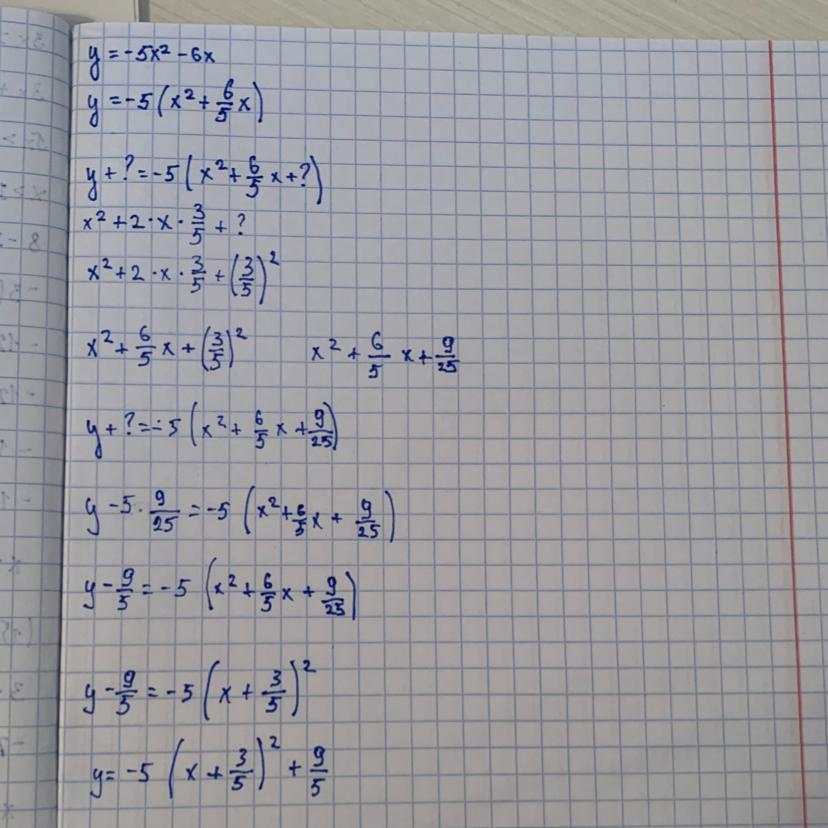 y = -5x² - 6x
y = -5(x² + 6/5 x)
y + ? = -5(x² + 6/5 x + ?)
x² + 2 · x · 3/5 + ?
x² + 2 · x · 3/5 + (3/5)²
x² + 6/5 x + (3/5)² x² + 6/5 x + 9/25
y + ? = -5(x² + 6/5 x + 9/25)
y - 5 · 9/25 = -5(x² + 6/5 x + 9/25)
y - 9/5 = -5(x² + 6/5 x + 9/25)
y - 9/5 = -5(x + 3/5)²
y = -5(x + 3/5)² + 9/5